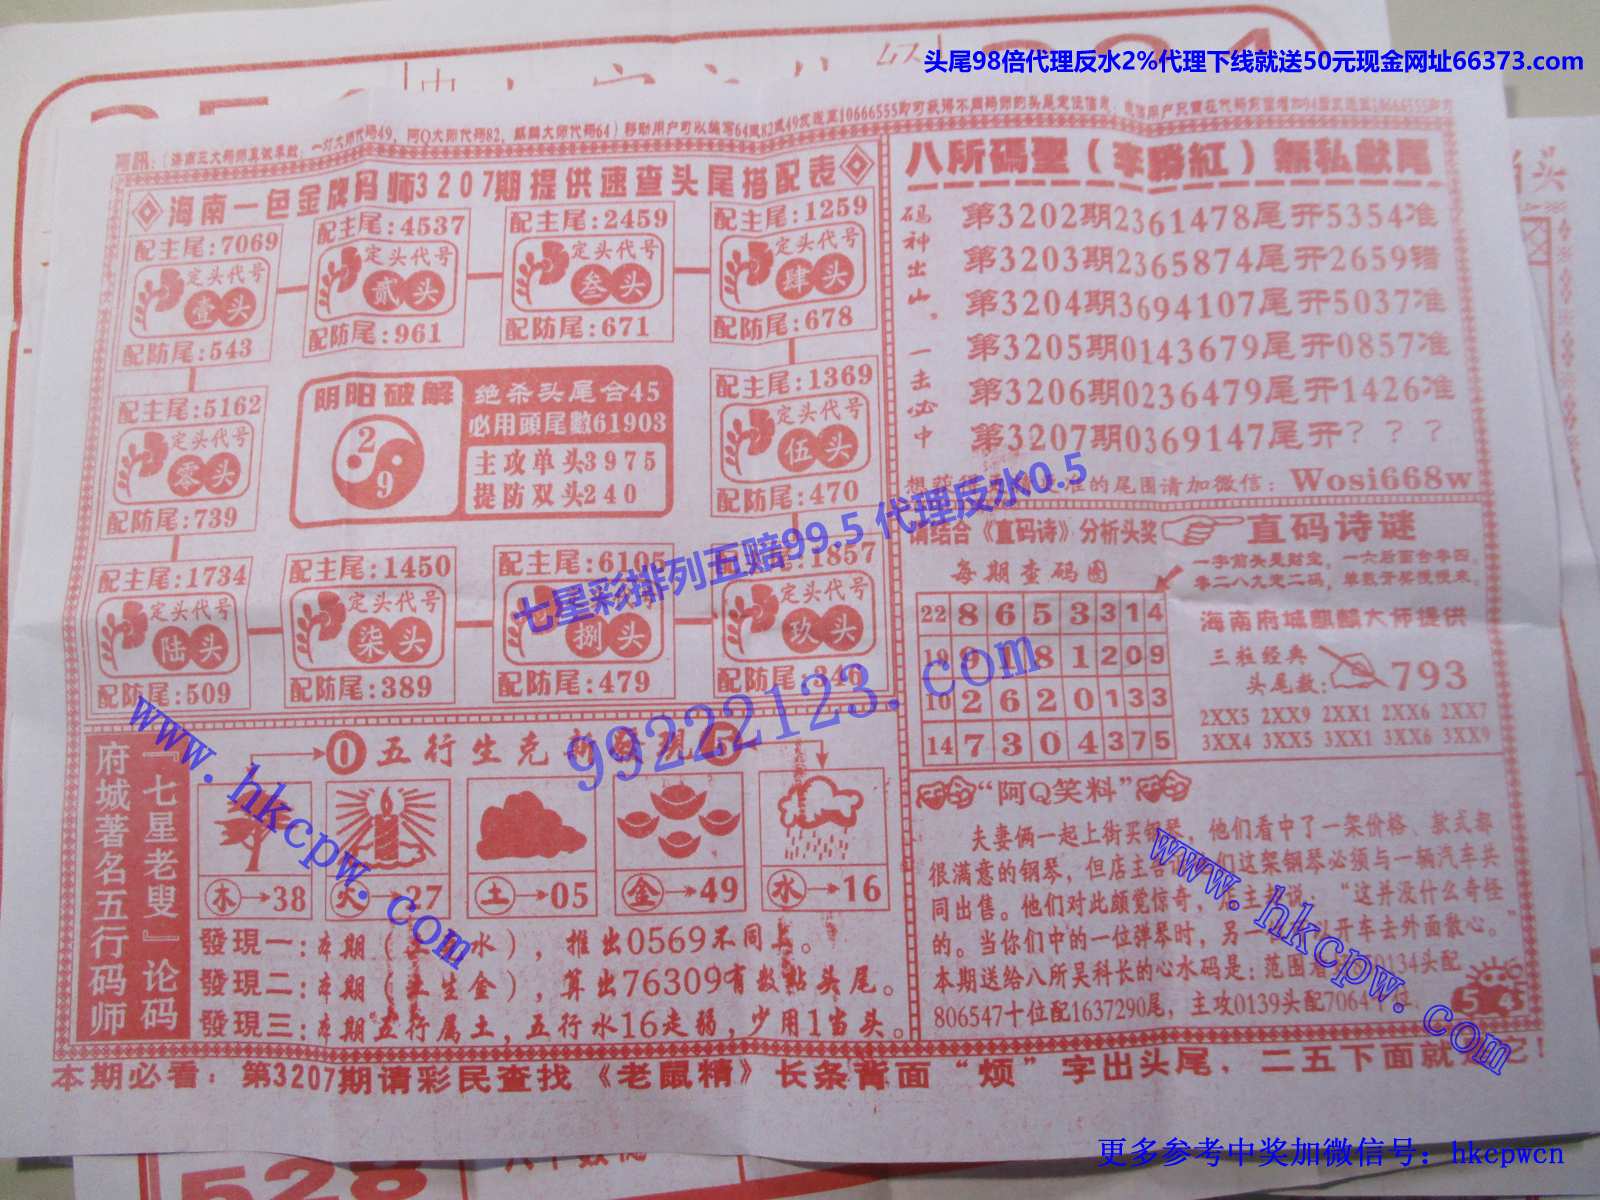 头尾98倍代理反水2%代理下线就送50元现金网址66373.com
海南一色金牌码师3207期提供速查头尾搭配表
配主尾:7069
定头代号
壹头
配防尾:543
配主尾:4537
定头代号
贰头
配防尾:961
配主尾:2459
定头代号
叁头
配防尾:671
配主尾:1259
定头代号
肆头
配防尾:678
配主尾:5162
定头代号
零头
配防尾:739
阴阳破解
2
9
绝杀头尾合45
必用頭尾數61903
主攻单头3975
提防双头240
配主尾:1369
定头代号
伍头
配防尾:470
配主尾:1734
定头代号
陆头
配防尾:509
配主尾:1450
定头代号
柒头
配防尾:389
配主尾:6105
捌头
配防尾:479
1857
定头代号
玖头
配防尾:346
八所碼聖(李勝紅)無私献尾
碼神出山。一击必中
第3202期2361478尾开5354准
第3203期2365874尾开2659错
第3204期3694107尾开5037准
第3205期0143679尾开0857准
第3206期0236479尾开1426准
第3207期0369147尾开???
准的尾围请加微信:Wosi668w
请结合《直码诗》分析头奖
直码诗谜
每期查码图
一字前头是财宝,一六后面合零四,
零二八九定二码,单数开奖慢慢来。
22 8 6 5 3 3 1 4
19 9 1 8 1 2 0 9
10 2 6 2 0 1 3 3
14 7 3 0 4 3 7 5
海南府城麒麟大师提供
三粒经典
头尾数:793
2XX5 2XX9 2XX1 2XX6 2XX7
3XX4 3XX5 3XX1 3XX6 3XX9
七星彩排列五赔99.5 代理反水0.5
99222123.com
『七星老叟』论码
府城著名五行码师
0 五行生克
木→38
火→27
土→05
金→49
水→16
發現一:本期(水),推出0569不同头。
發現二:本期(土生金),算出76309有数點头尾。
發現三:本期五行属土,五行水16走弱,少用1当头。
“阿Q笑料”
夫妻俩一起上街买钢琴,他们看中了一架价格、款式都
很满意的钢琴,但店主告们这架钢琴必须与一辆汽车共
同出售。他们对此颇觉惊奇,店主却说:“这并没什么奇怪
的。当你们中的一位弹琴时,另一以开车去外面散心。”
本期送给八所吴科长的心水码是:范围0134头配
806547十位配1637290尾,主攻0139头配7064
545
www.hkcpw.com
www.hkcpw.com
本期必看:第3207期请彩民查找《老鼠精》长条背面“烦”字出头尾,二五下面就是它!
528
更多参考中奖加微信号:hkcpwcn